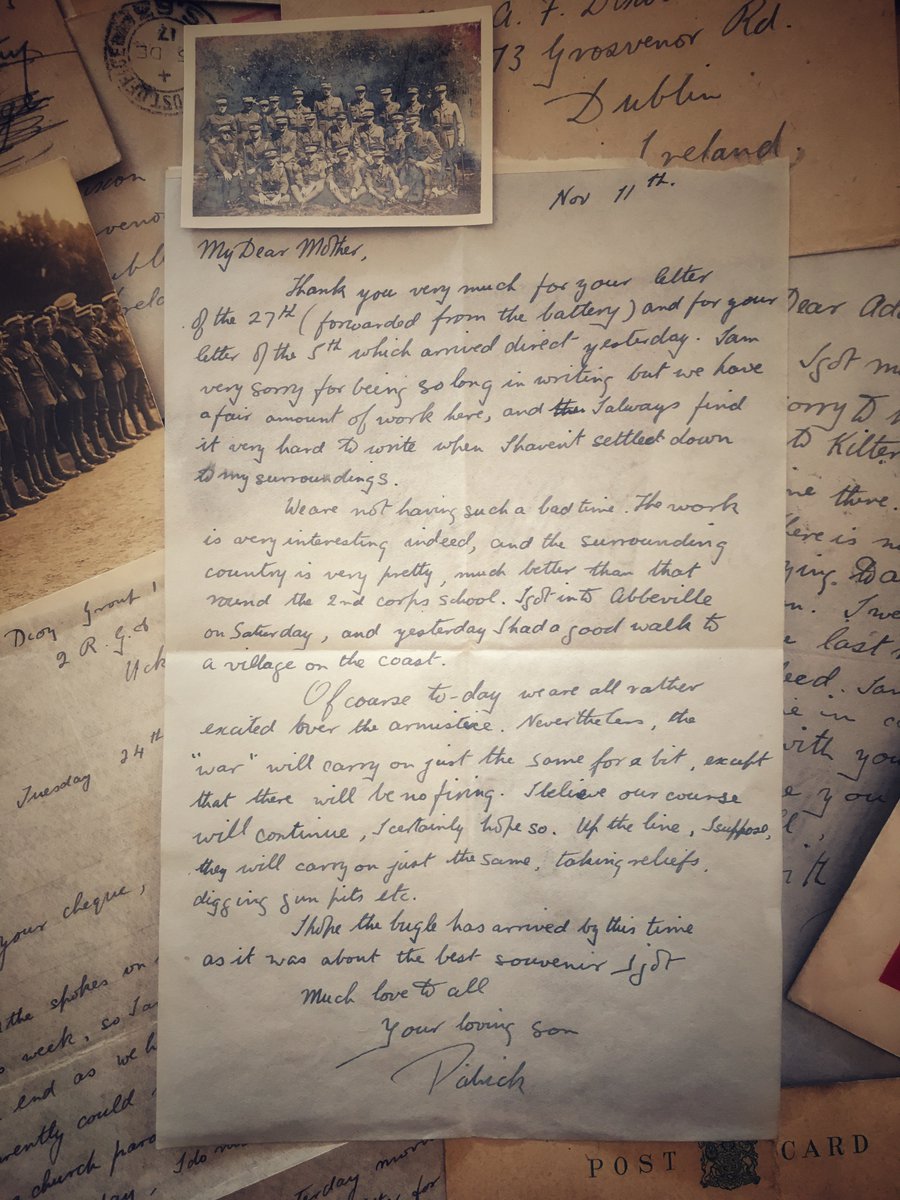 A. F. Dixon
73 Grosvenor Rd.
Dublin
Ireland.
Nov 11th.
My Dear Mother,
Thank you very much for your letter
of the 27th (forwarded from the battery) and for your
letter of the 5th which arrived direct yesterday. I am
very sorry for being so long in writing but we have
a fair amount of work here, and I always find
it very hard to write when I haven't settled down
to my surroundings.
We are not having such a bad time. The work
is very interesting indeed, and the surrounding
country is very pretty, much better than that
round the 2nd corps school. I got into Abbeville
on Saturday, and yesterday I had a good walk to
a village on the coast.
Of course to-day we are all rather
excited over the armistice. Nevertheless, the
"war" will carry on just the same for a bit, except
that there will be no firing. I believe our course
will continue, I certainly hope so. Up the line, I suppose,
they will carry on just the same, taking reliefs,
digging gun pits etc.
I hope the bugle has arrived by this time
as it was about the best souvenir I got
Much love to all
Your loving son
Patrick
Dear
I got
to
there.
last
with you
Tuesday 24th
your cheque,
the spokes on
week, so I
end as we
could
church
I do
POST CARD